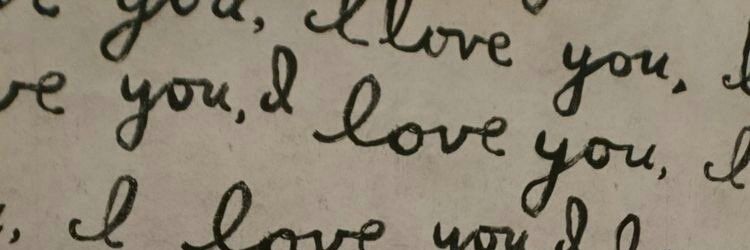 you, I love you,
ve you, I love you, I
, I love you I l